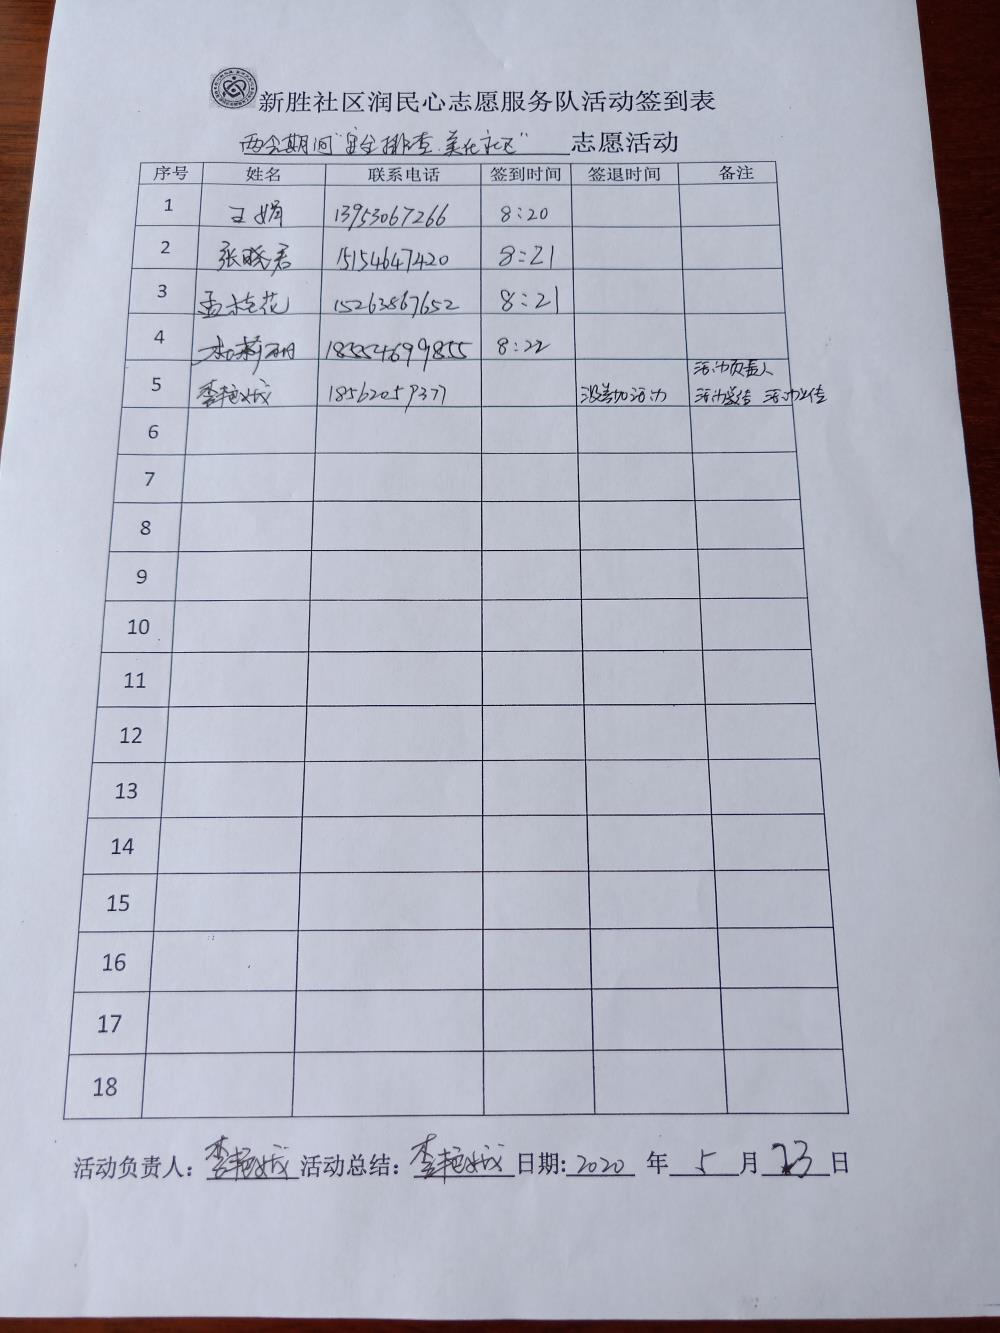 新胜社区润民心志愿服务队活动签到表
两会期间"安全排查、美化社区" 志愿活动
序号 姓名 联系电话 签到时间 签退时间 备注
1 王娟 13953067266 8:20
2 张晓君 15154647420 8:21
3 孟桂花 15263867652 8:21
4 18554699855 8:22
活动负责人
5 李艳姣 18562059377 没参加活动 活动宣传 活动上传
6
7
8
9
10
11
12
13
14
15
16
17
18
活动负责人:李艳姣 活动总结:李艳姣 日期:2020 年 5 月 23 日